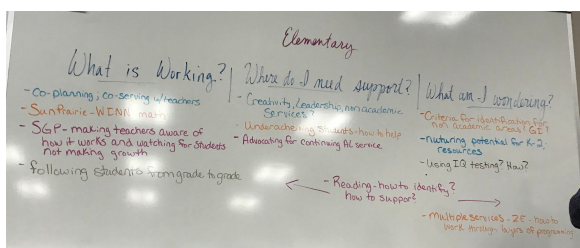 Elementary
What is Working?
- Co-planning; co-serving w/teachers
- Sun Prairie - WINN math
- SGP - making teachers aware of
how it works and watching for students
not making growth
- following students from grade to grade
Where do I need support?
- Creativity, Leadership, non academic
Services?
- Underachieving students - how to help
- Advocating for continuing AL service
- Reading - how to identify?
how to support?
What am I wondering?
- Criteria for identification for
non academic areas? GI?
- nuturing potential for K-2,
resources
- Using IQ testing? How?
- multiple services - 2E - how to
work through layers of programming